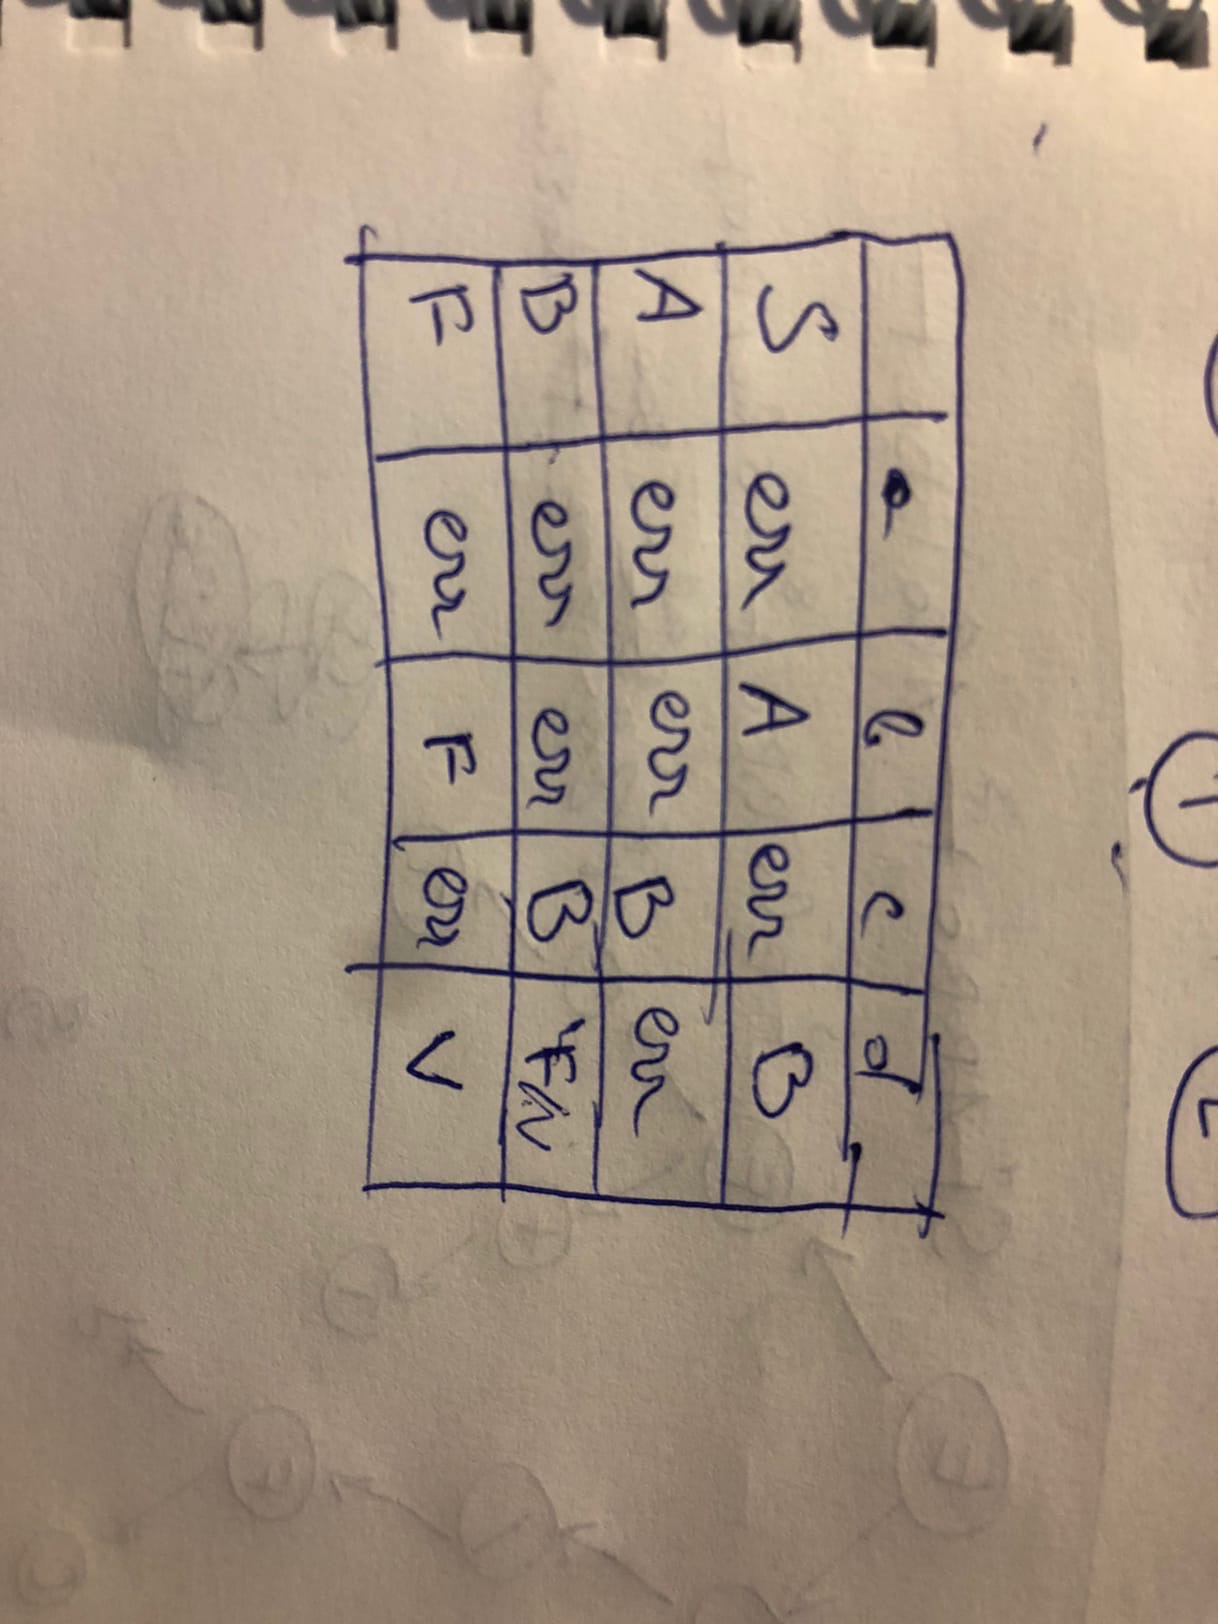 a b c d
S err A err B
A err err B err
B err err B
F err F err V
1